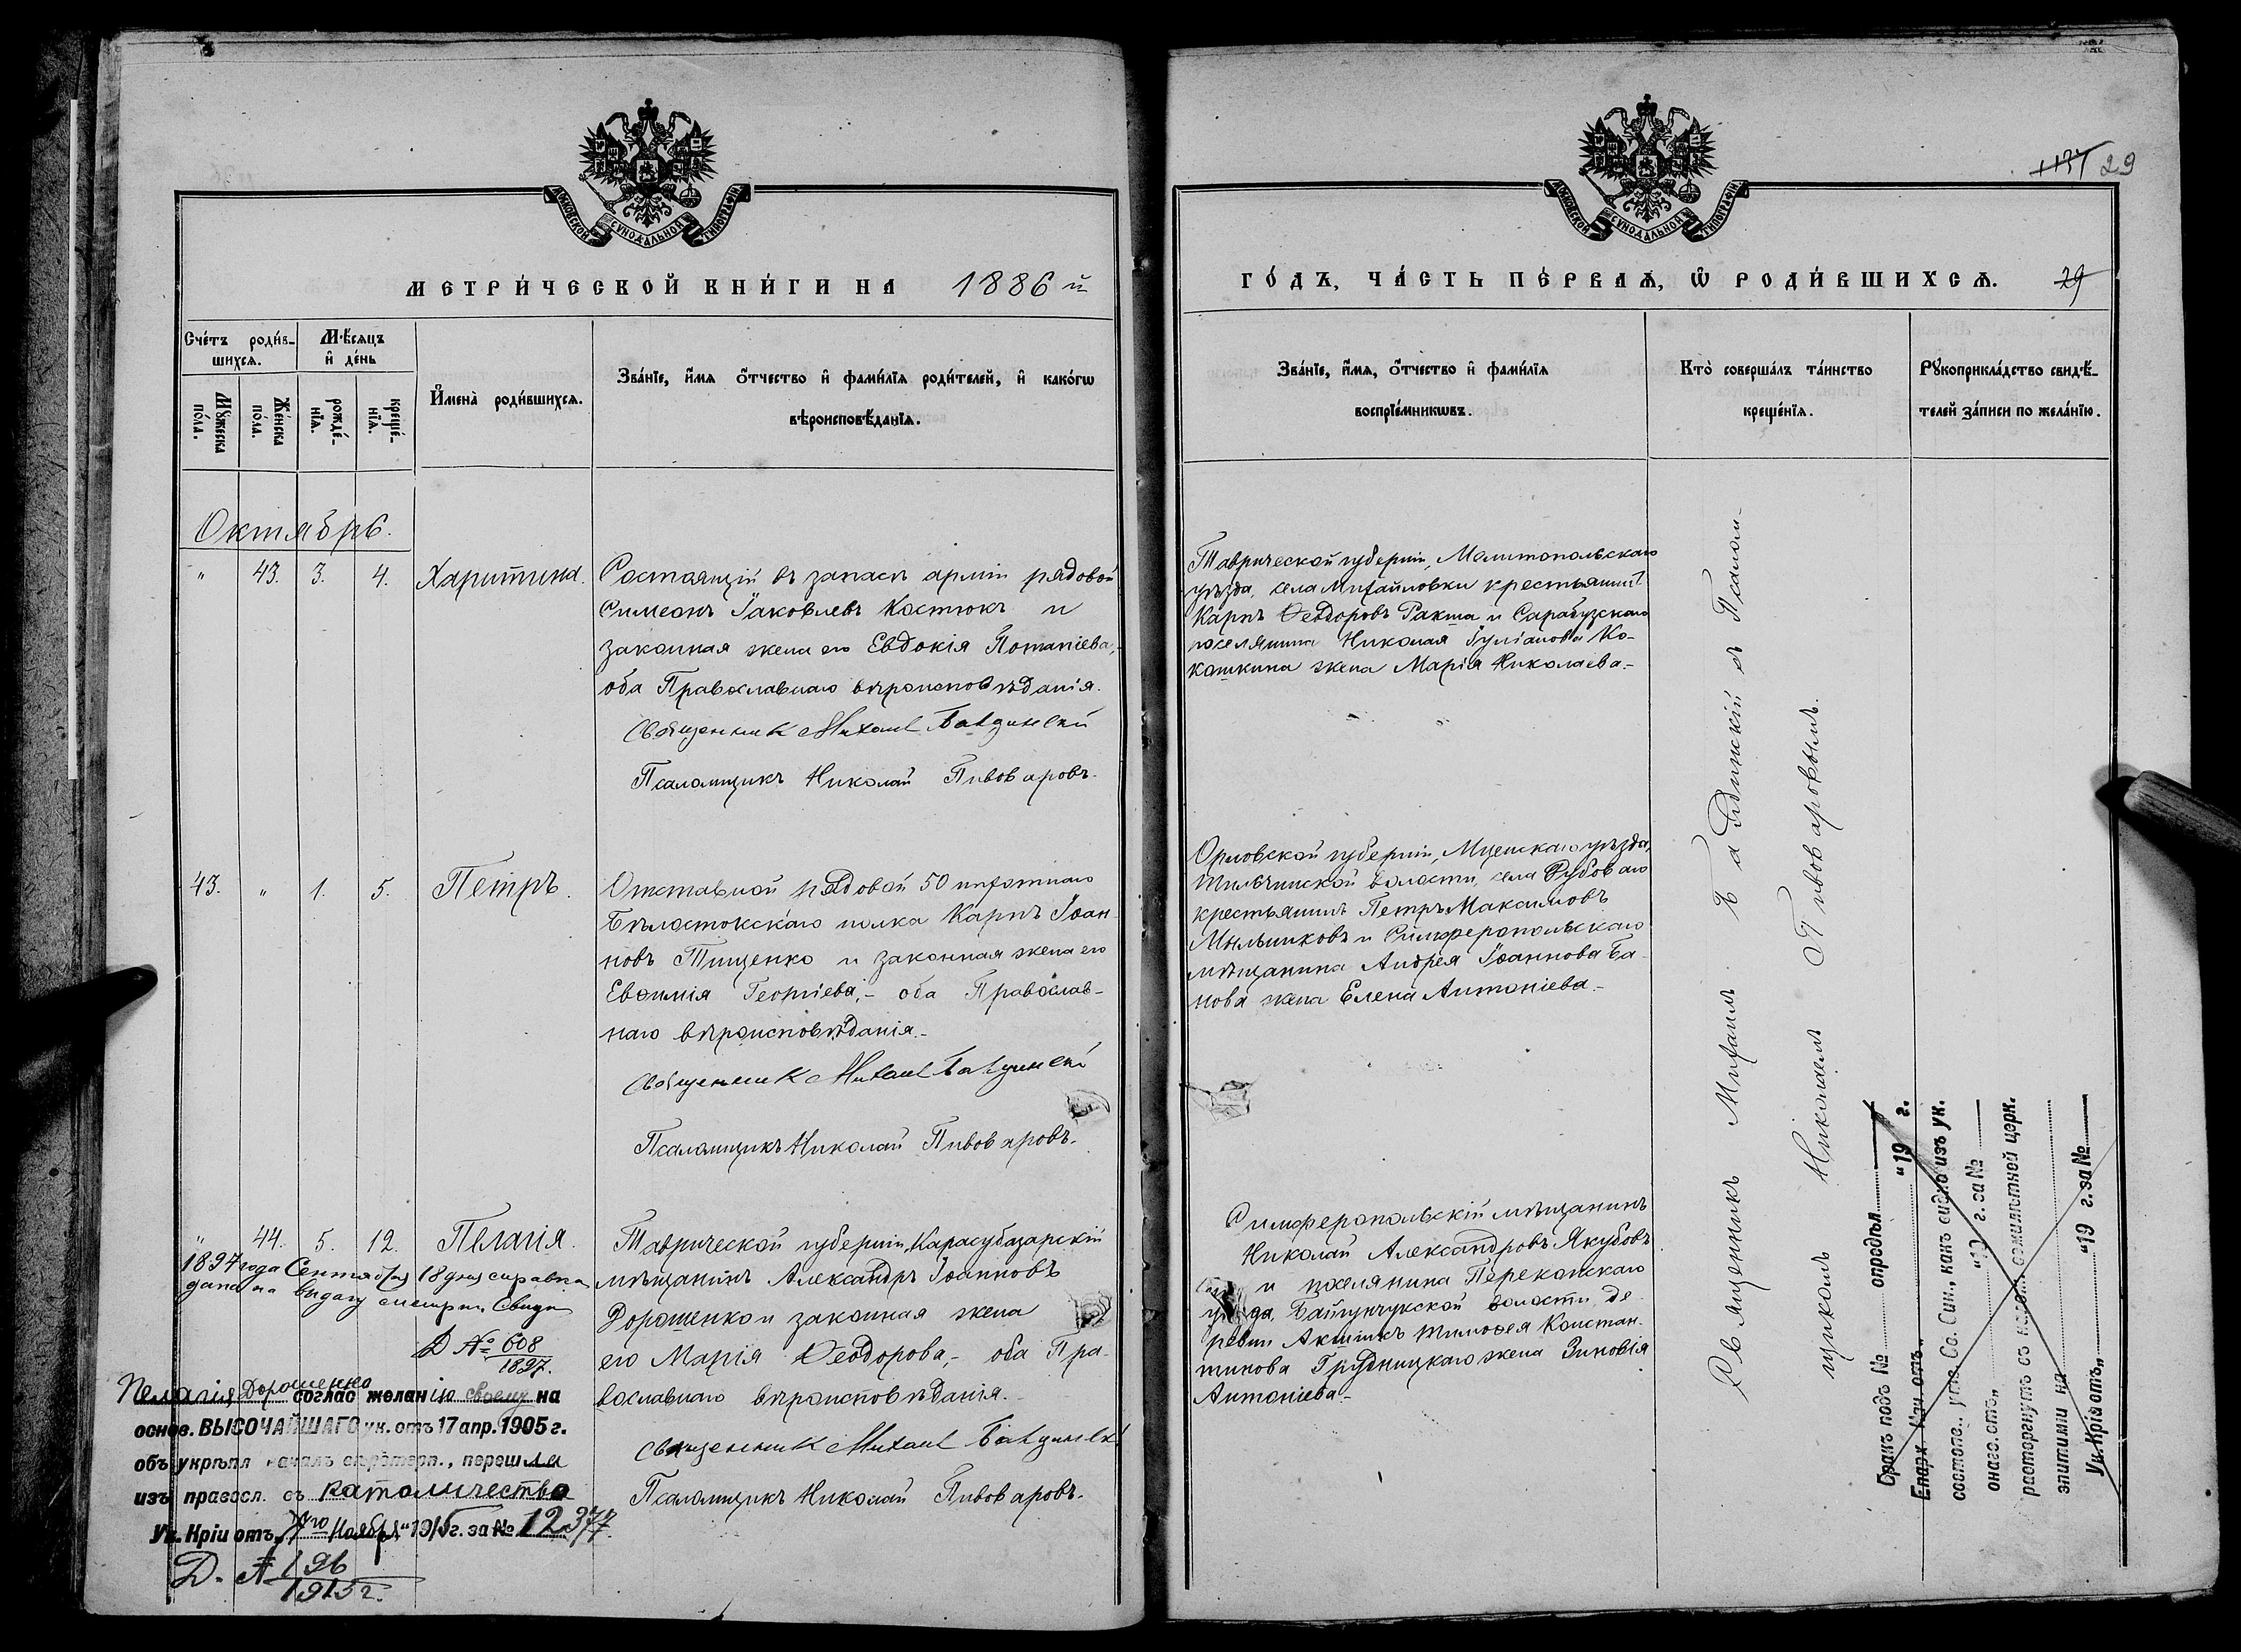 МЕТРИ́ЧЕСКОЙ КНИ́ГИ НА 1886 й
Сче́тъ роди́в-
шихсѧ.
Мѣ́сѧцъ
и҆ де́нь
Мꙋ́жеска
по́ла.
Же́нска
по́ла.
рожде́-
нїѧ.
креще́-
нїѧ.
И҆мена̀ роди́вшихсѧ.
Зва́нїе, и҆́мѧ ѻ҆́тчество и҆ фами́лїѧ роди́телей, и҆ како́гѡ
вѣроисповѣ́данїѧ.
Октябрь.
" 43. 3. 4. Харитина.
Состоящій въ запасѣ арміи рядовой
Симеонъ Іаковлевъ Костюкъ и
законная жена его Евдокія Потапіева,-
оба Православнаго вѣроисповѣданія.
Священник Михаил
Псаломщикъ Николай Пивоваровъ.
43. " 1. 5. Петръ.
Отставной рядовой 50 пѣхотнаго
Бѣлостокскаго полка Карпъ Іоан-
новъ Тищенко и законная жена его
Евѳимія Георгіева,- оба Православ-
наго вѣроисповѣданія.-
Священник Михаил
Псаломщикъ Николай Пивоваровъ.
" 44. 5. 12. Пелагія.
Таврической губерніи, Карасубазарскій
мѣщанинъ Александръ Іоанновъ
Дорошенко и законная жена
его Марія Ѳеодорова,- оба Пра-
вославнаго вѣроисповѣданія.-
Священник Михаил
Псаломщикъ Николай Пивоваровъ.
1897 года Сентября 18 дня справка
дана на выдачу метрич. Свид.
Д № 608
1897.
Пелагія Дорошенко
соглас желанію своему на
основ. ВЫСОЧАЙШАГО ук. отъ 17 апр. 1905 г.
объ укрѣпл началъ вѣротерп., перешла
изъ правосл. въ католичество
Ук. Крiи отъ „7го Ноября" 1915 г. за № 12377.
Д. № 196
1915 г.
МОСКОВСКОЙ СѴНОДАЛЬНОЙ ТИПОГРАФІИ
29
ГО́ДЪ, ЧА́СТЬ ПЕ́РВАѦ, Ѡ҆ РОДИ́ВШИХСѦ. 29
Зва́нїе, и҆́мѧ, ѻ҆́тчество и҆ фами́лїѧ
воспрїе́мникѡвъ.
Кто̀ соверша́лъ та́инство
креще́нїѧ.
Рꙋкоприкла́дство свидѣ́-
телей за́писи по жела́нїю.
Таврической губерніи, Мелитопольскаго
уѣзда, села Михайловки крестьянинъ
Карпъ Ѳеодоровъ Ракша и Сарабузскаго
поселянина Николая Іуліанова Ко-
кошкина жена Марія Николаева.-
Орловской губерніи, Мценскаго уѣзда,
волости, села
крестьянинъ Петръ Максимовъ
Мыльниковъ и Симферопольскаго
мѣщанина Андрея Іоаннова Ба-
нова жена Елена Антоніева.-
Симферопольскій мѣщанинъ
Николай Александровъ Якубовъ
и поселянина Перекопскаго
уѣзда, волости, де-
ревни Тимоѳея Констан-
тинова Грудницкаго жена Зиновія
Антоніева.-
Священникъ Михаилъ съ Псалом-
щикомъ Николаемъ Пивоваровымъ.
Бракъ подъ № опредѣл
Епарх. Нач отъ „ "19 г.
состояв., утв. Св. Син., какъ видно изъ ук.
онаго. отъ „ "19 г. за №
расторгнутъ съ возл. семилѣтней церк.
эпитиміи на
Ук. Крiи отъ „ "19 г. за №